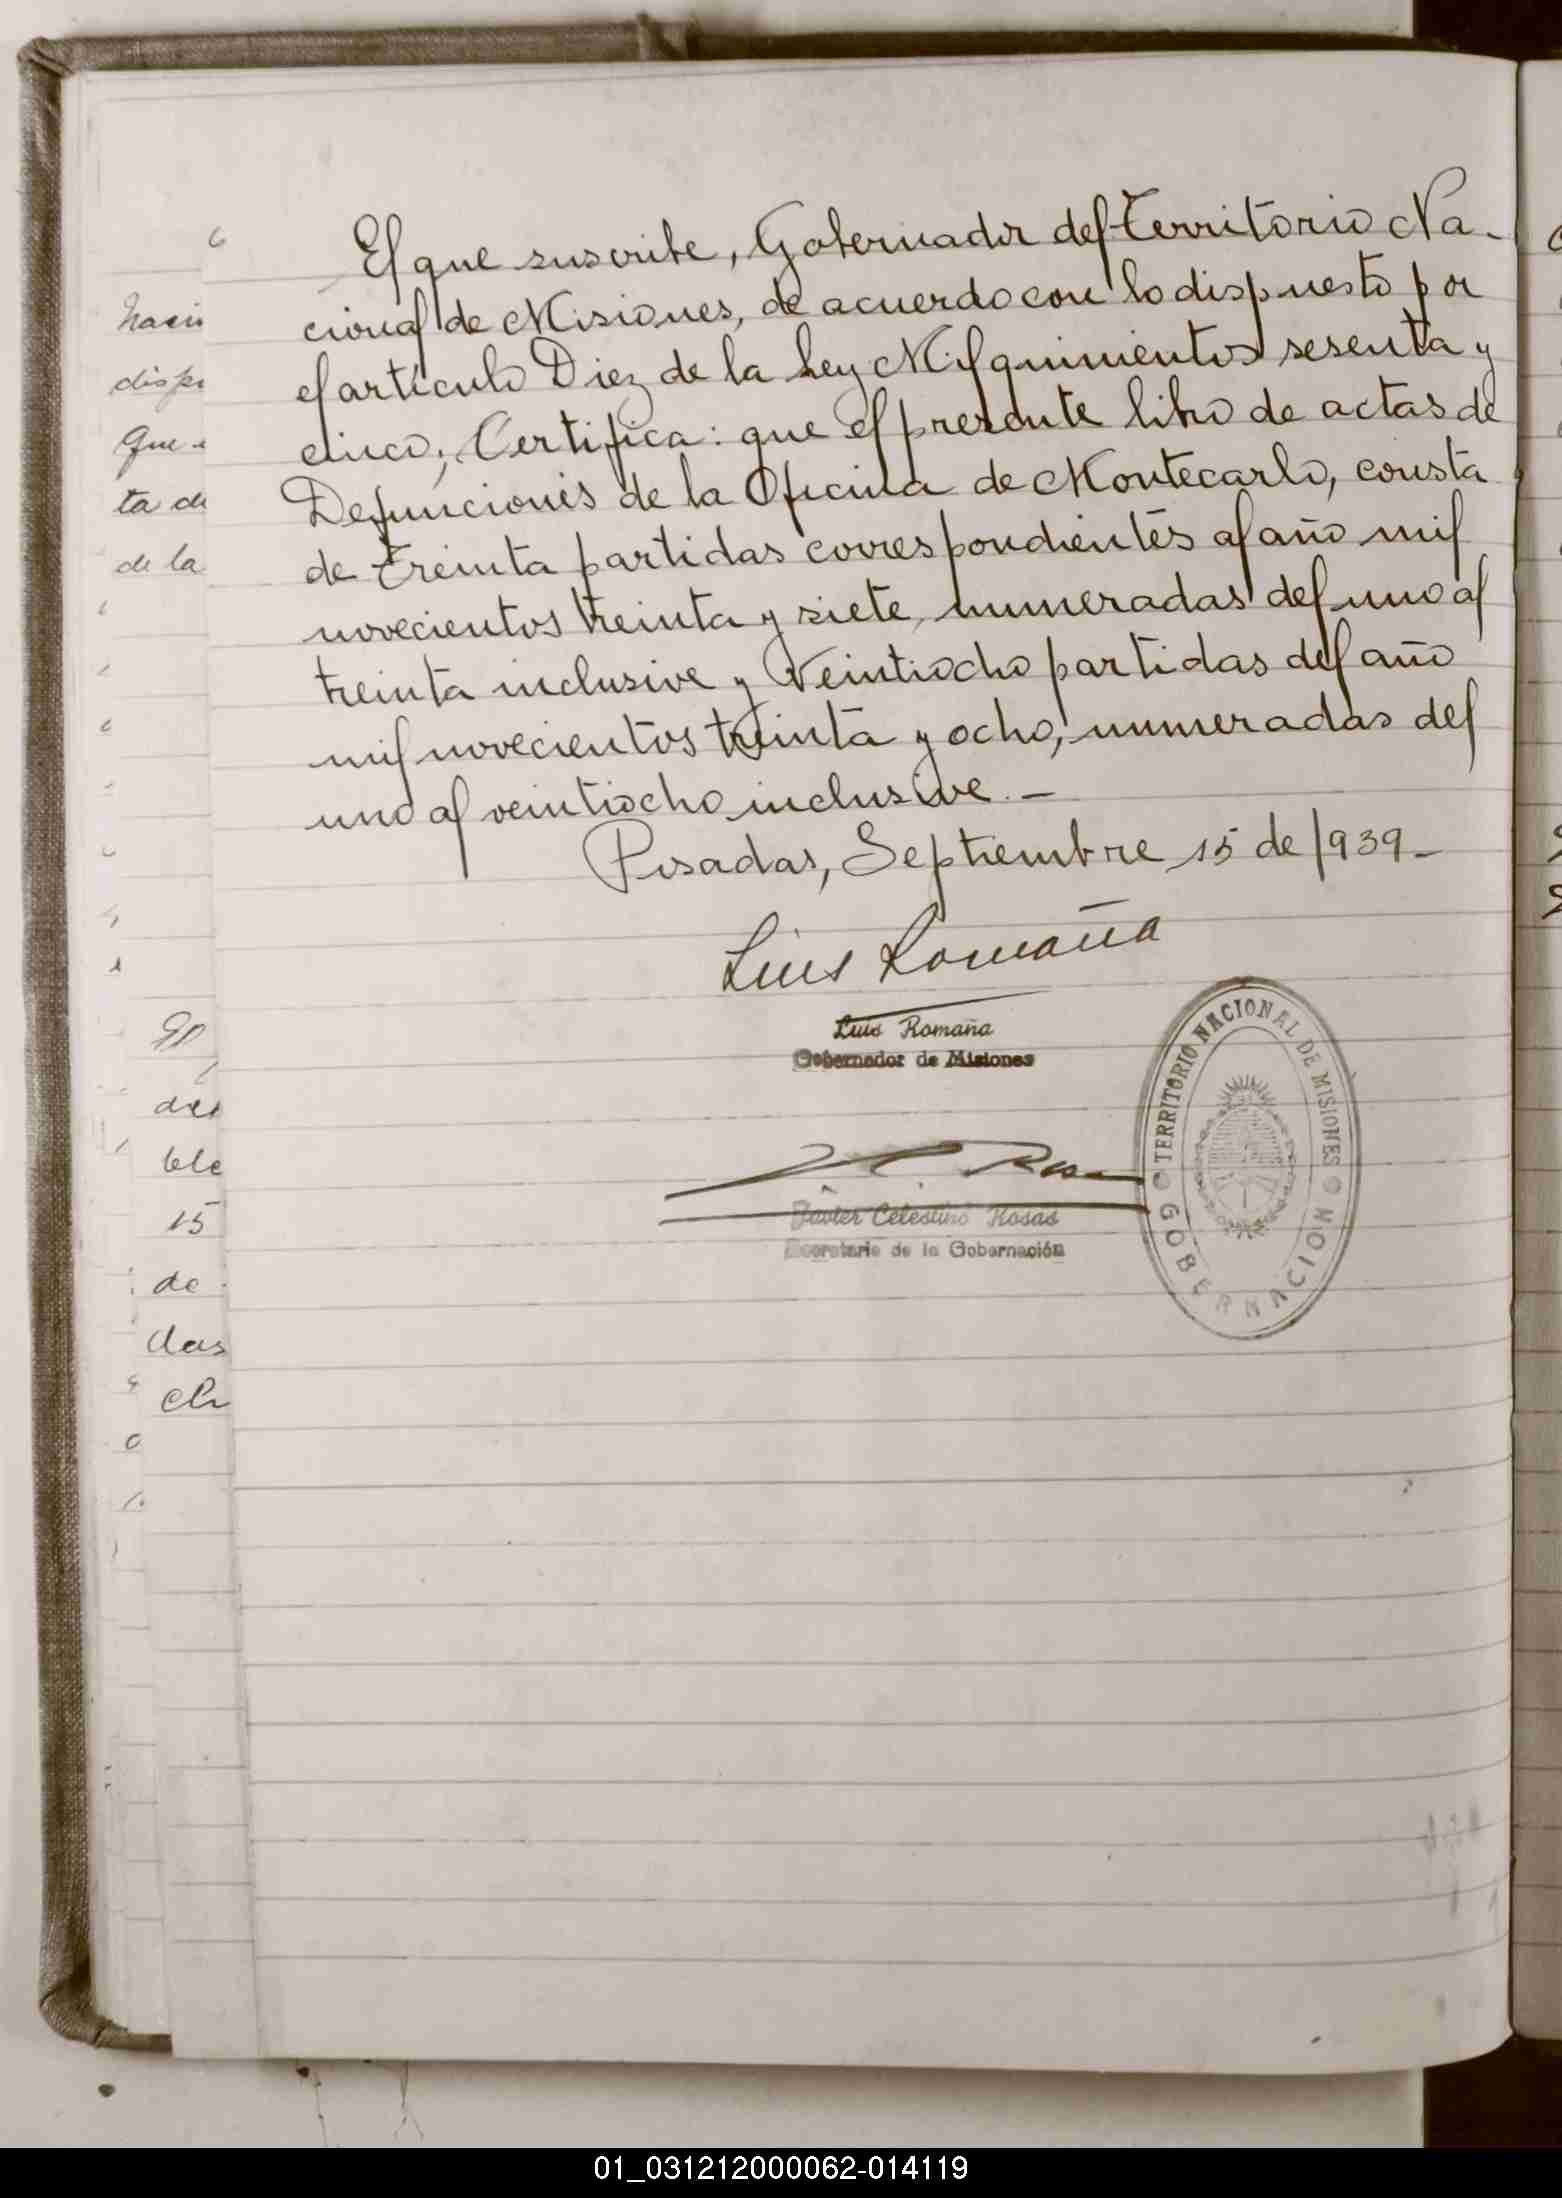 El que suscribe, Gobernador del Territorio Na-
cional de Misiones, de acuerdo con lo dispuesto por
el artículo Diez de la Ley Mil quinientos sesenta y
cinco; Certifica: que el presente libro de actas de
Defunciones de la Oficina de Montecarlo, consta
de treinta partidas correspondientes al año mil
novecientos treinta y siete, numeradas del uno al
treinta inclusive y Veintiocho partidas del año
mil novecientos treinta y ocho, numeradas del
uno al veintiocho inclusive.—
Posadas, Septiembre 15 de 1939—
Luis Romaña
Luis Romaña
Gobernador de Misiones
TERRITORIO NACIONAL DE MISIONES
GOBERNACION
Javier Celestino Rosas
Secretario de la Gobernación
dispu
Que
ta de
de la
ble
15
de
das
01_031212000062-014119